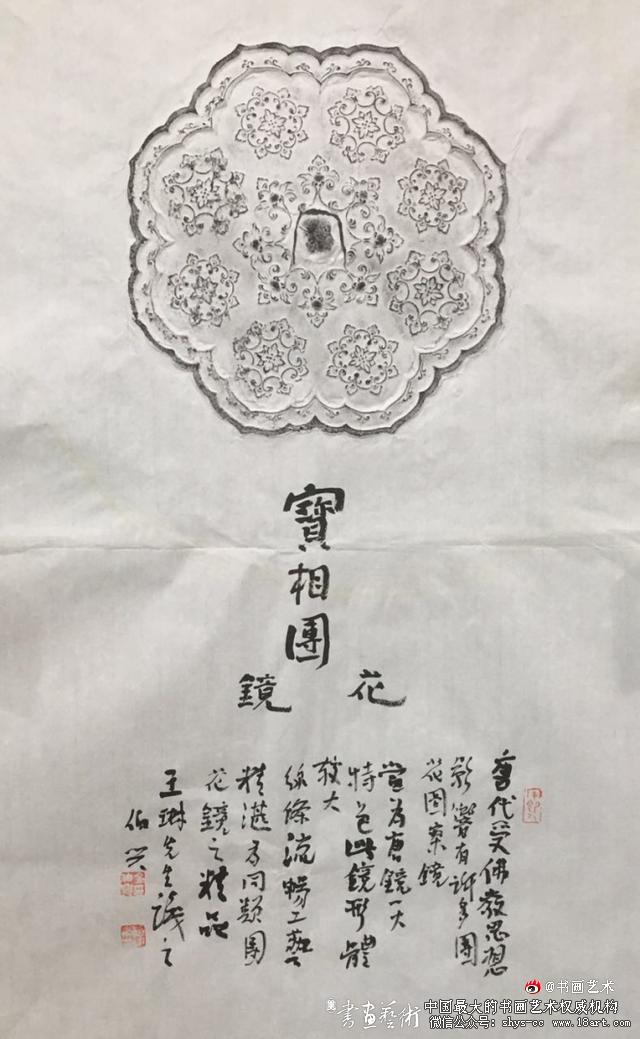 寶相團
花鏡
唐代受佛教思想
影響有許多團
花图案鏡
當为唐鏡一大
特色此鏡形體
較大
線條流暢工藝
精湛为同類團
花鏡之精品
王琳先生識之
伯兴
@书画艺术
書畫藝術
中国最大的书画艺术权威机构
微信公众号：shys-cc www.18art.com